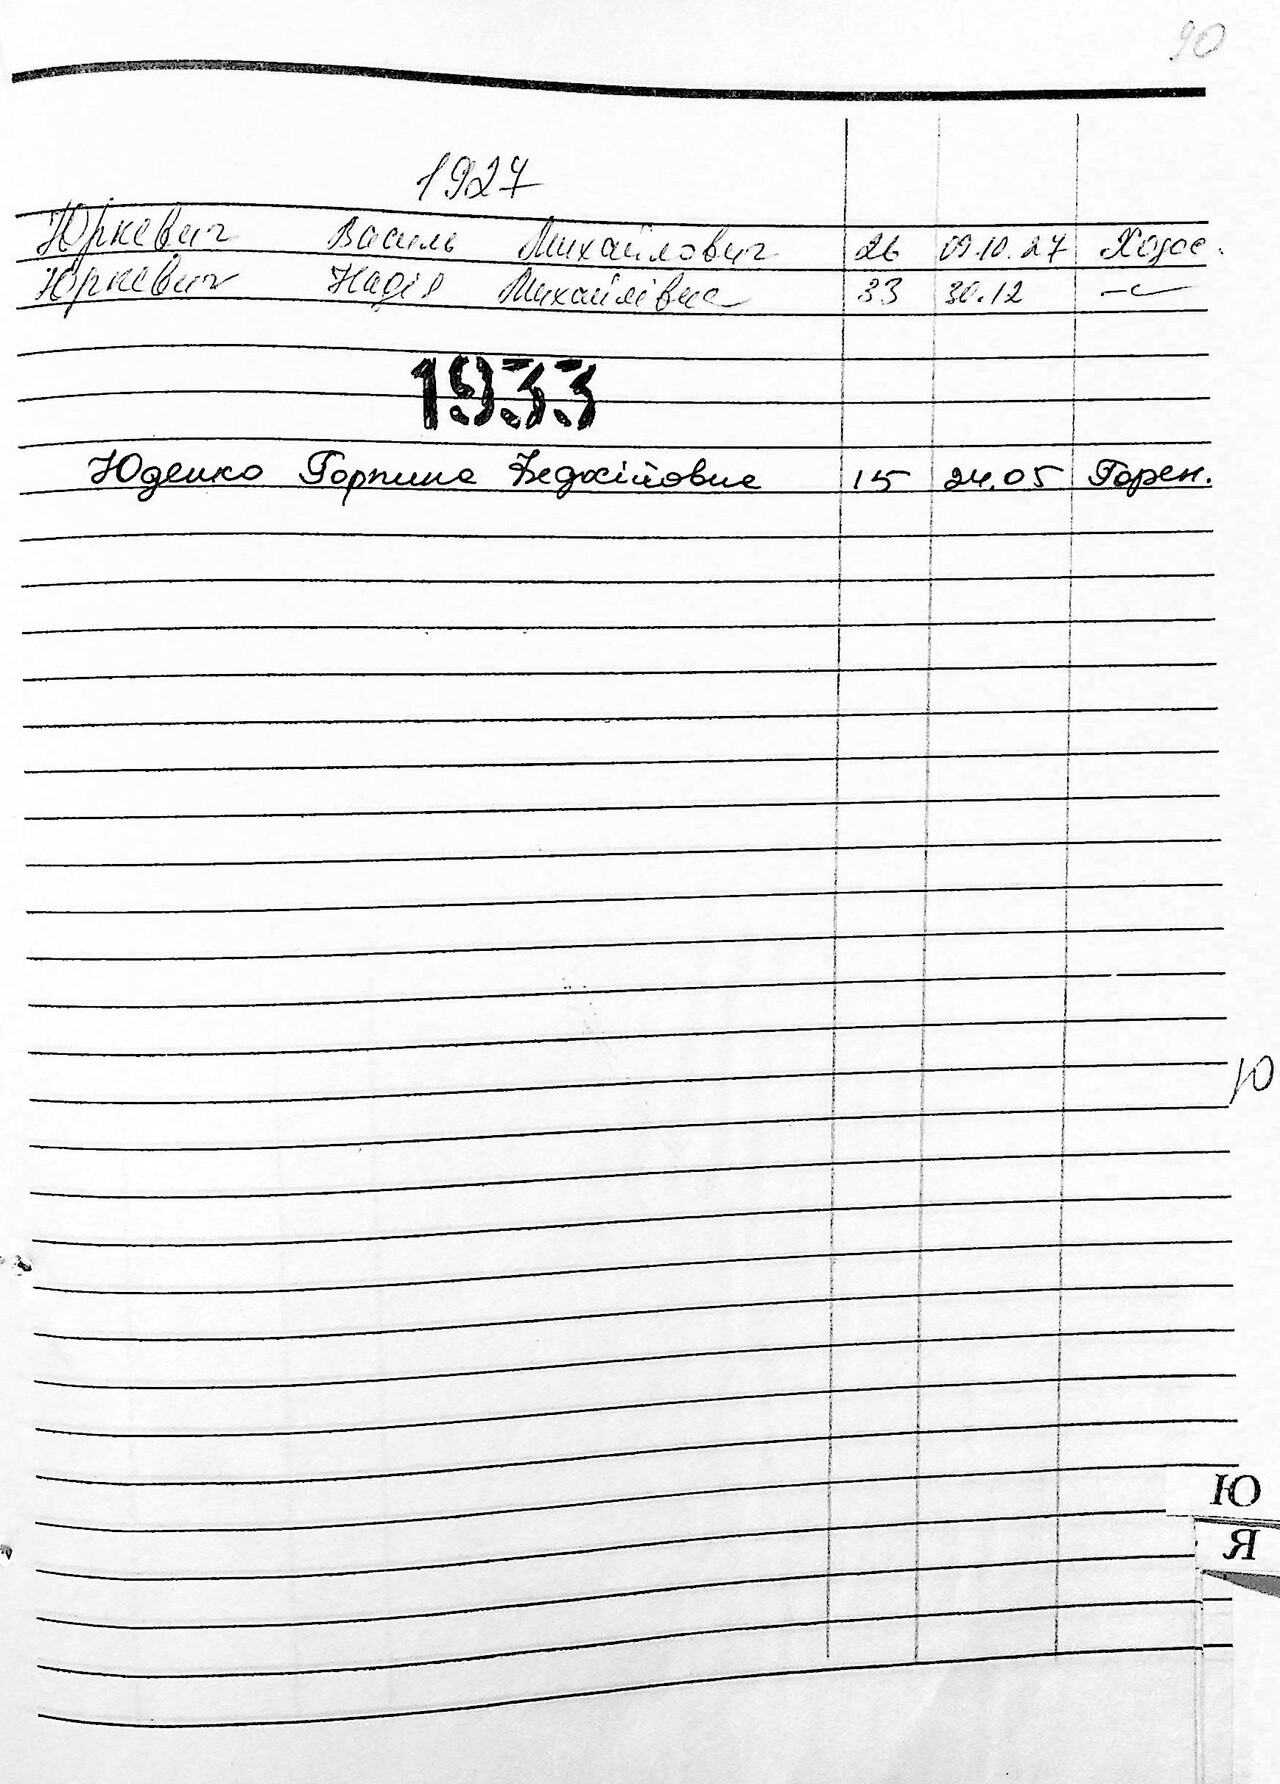 90
1927
Юркевич Василь Михайлович 26 09.10.27 Ходос.
Юркевич Надія Михайлівна 33 30.12 -"-
1933
Юденко Горпина 15 24.05 Горен.
Ю
Ю
Я